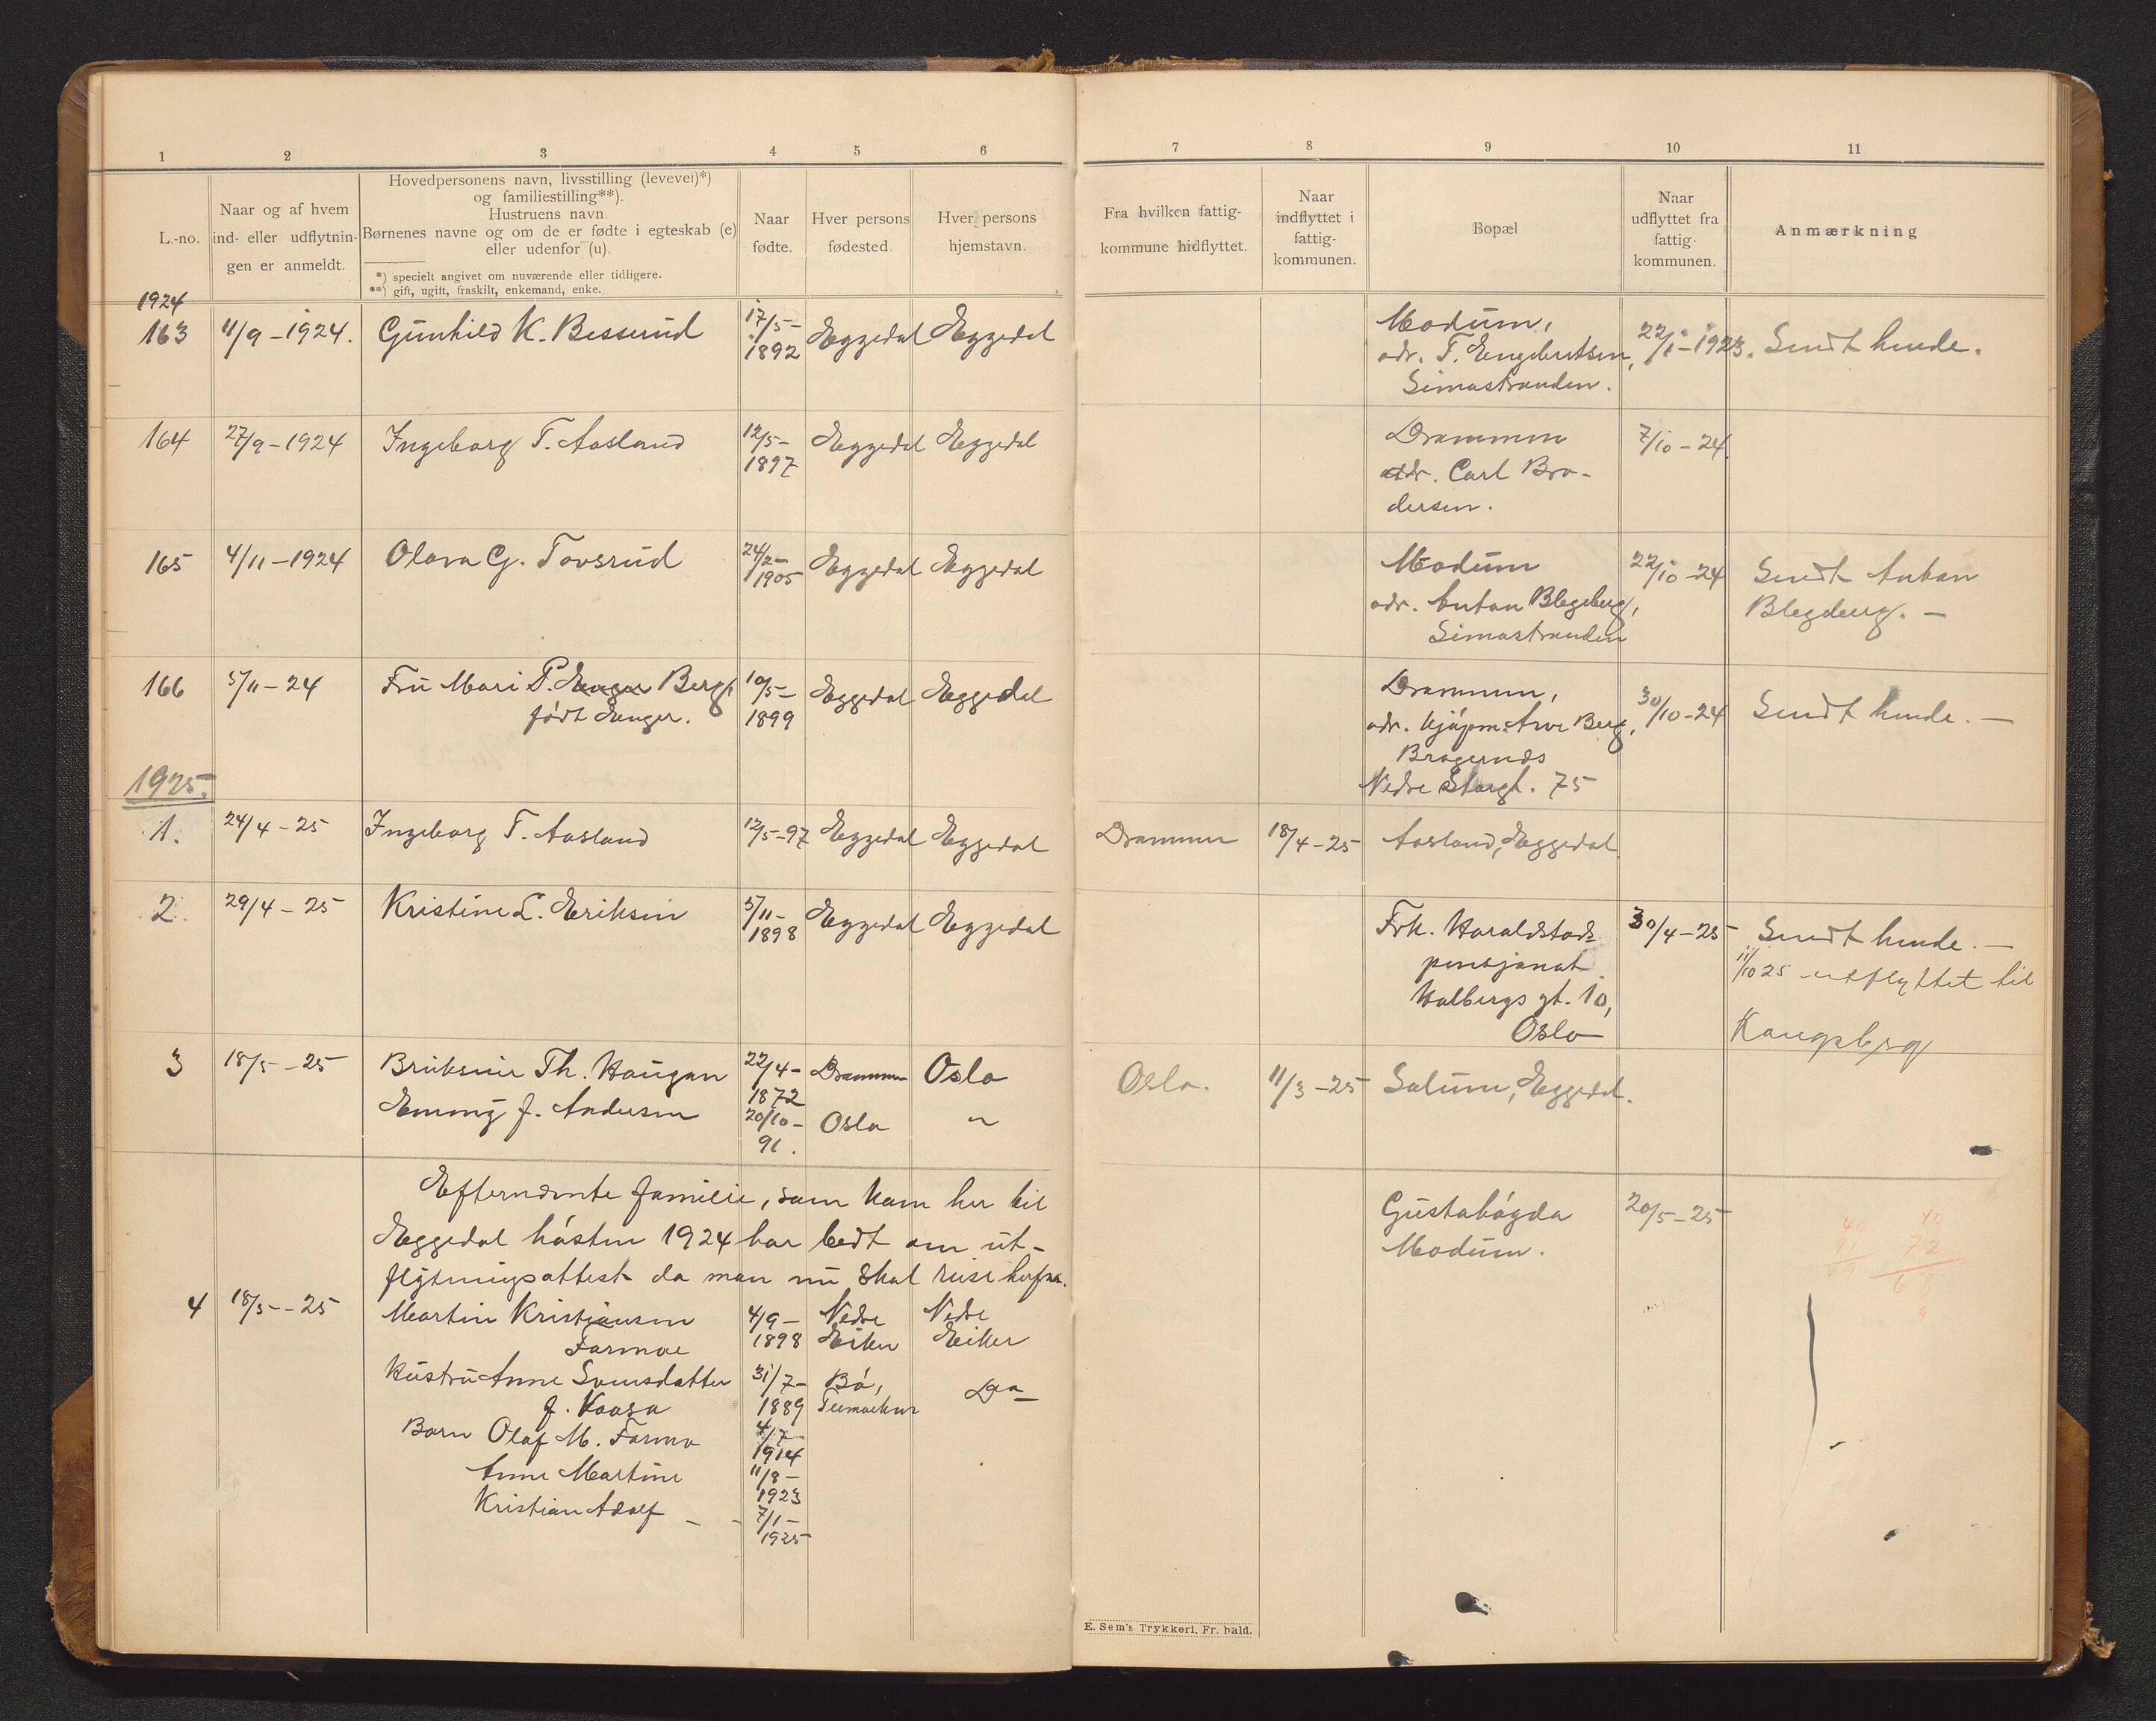 1 2 3 4 5 6 7 8 9 10 11
L.-no.
Naar og af hvem
ind- eller udflytnin-
gen er anmeldt.
Hovedpersonens navn, livsstilling (levevei)*)
og familiestilling**).
Hustruens navn
Børnenes navne og om de er fødte i egteskab (e)
eller udenfor (u).
*) specielt angivet om nuværende eller tidligere.
**) gift, ugift, fraskilt, enkemand, enke.
Naar
fødte.
Hver persons
fødested.
Hver persons
hjemstavn.
Fra hvilken fattig-
kommune hidflyttet.
Naar
indflyttet i
fattig-
kommunen.
Bopæl
Naar
udflyttet fra
fattig-
kommunen.
Anmærkning
1924
163 11/9-1924. Gunhild K. Besserud 17/5- 1892 Eggedal Eggedal
Modum,
adr. T. Engebretsen,
Simostranden.
22/1-1923. Sendt hende.
164 27/9-1924 Ingeborg T. Aasland 12/5- 1897 Eggedal Eggedal
Drammen
adr. Carl Bro-
dersen.
7/10-24.
165 4/11-1924 Olava G. Tovsrud 24/2- 1905 Eggedal Eggedal
Modum
adr. Anton Blegeberg,
Simostranden
22/10-24 Sendt Anton
Blegeberg. -
166 5/11-24 Fru Mari P. Enger Berg,
født Enger.
10/5- 1899 Eggedal Eggedal
Drammen,
adr. kjøpm. Arve Berg,
Bragernes
Nedre Storgt. 75
30/10-24 Sendt hende. -
1925.
1. 24/4-25 Ingeborg T. Aasland 12/5-97 Eggedal Eggedal Drammen 18/4-25 Aasland, Eggedal.
2. 29/4-25 Kristine L. Eriksen 5/11- 1898 Eggedal Eggedal
Frk. Haraldstads
pensjonat
Holbergs gt. 10,
Oslo
30/4-25 Sendt hende. -
11/10 25 utflyttet til
Kongsberg
3 18/5-25 Th. Haugan 22/4- 1872 Drammen Oslo Oslo. 11/3-25 Solum, Eggedal.
Emmy f. Andersen 20/10- 91. Oslo "
Efternevnte familie, som kom her til
Eggedal høsten 1924 har bedt om ut-
flytningsattest da man nu skal reise herfra.
Gustahøgda
Modum.
20/5-25
4 18/5-25 Martin Kristiansen
Farmoe
4/9- 1898 Nedre Eiker Nedre Eiker
Hustru Anne Svensdatter
f. Kaasa
31/7- 1889 Bø, Telemarken Do
Barn Olaf M. Farmo 4/7- 1914
Anne Martine 11/8- 1923
Kristian Adolf - - 7/1- 1925
40 40
91 72
68
9
E. Sem's Trykkeri, Fr. hald.